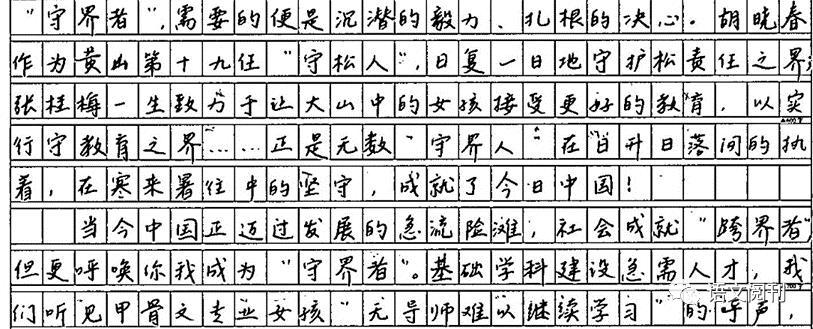 “守界者”,需要的便是沉潜的毅力、扎根的决心。胡晓春
作为黄山第十九任“守松人”,日复一日地守护松责任之界;
张桂梅一生致力于让大山中的女孩接受更好的教育,以实
行守教育之界……正是无数“守界人”在日升日落间的执
着,在寒来暑往中的坚守,成就了今日中国!
当今中国正迈过发展的急流险滩,社会成就“跨界者”,
但更呼唤你我成为“守界者”。基础学科建设急需人才,我
们听见甲骨文专业女孩“无导师难以继续学习”的呼声,
语文阅刊